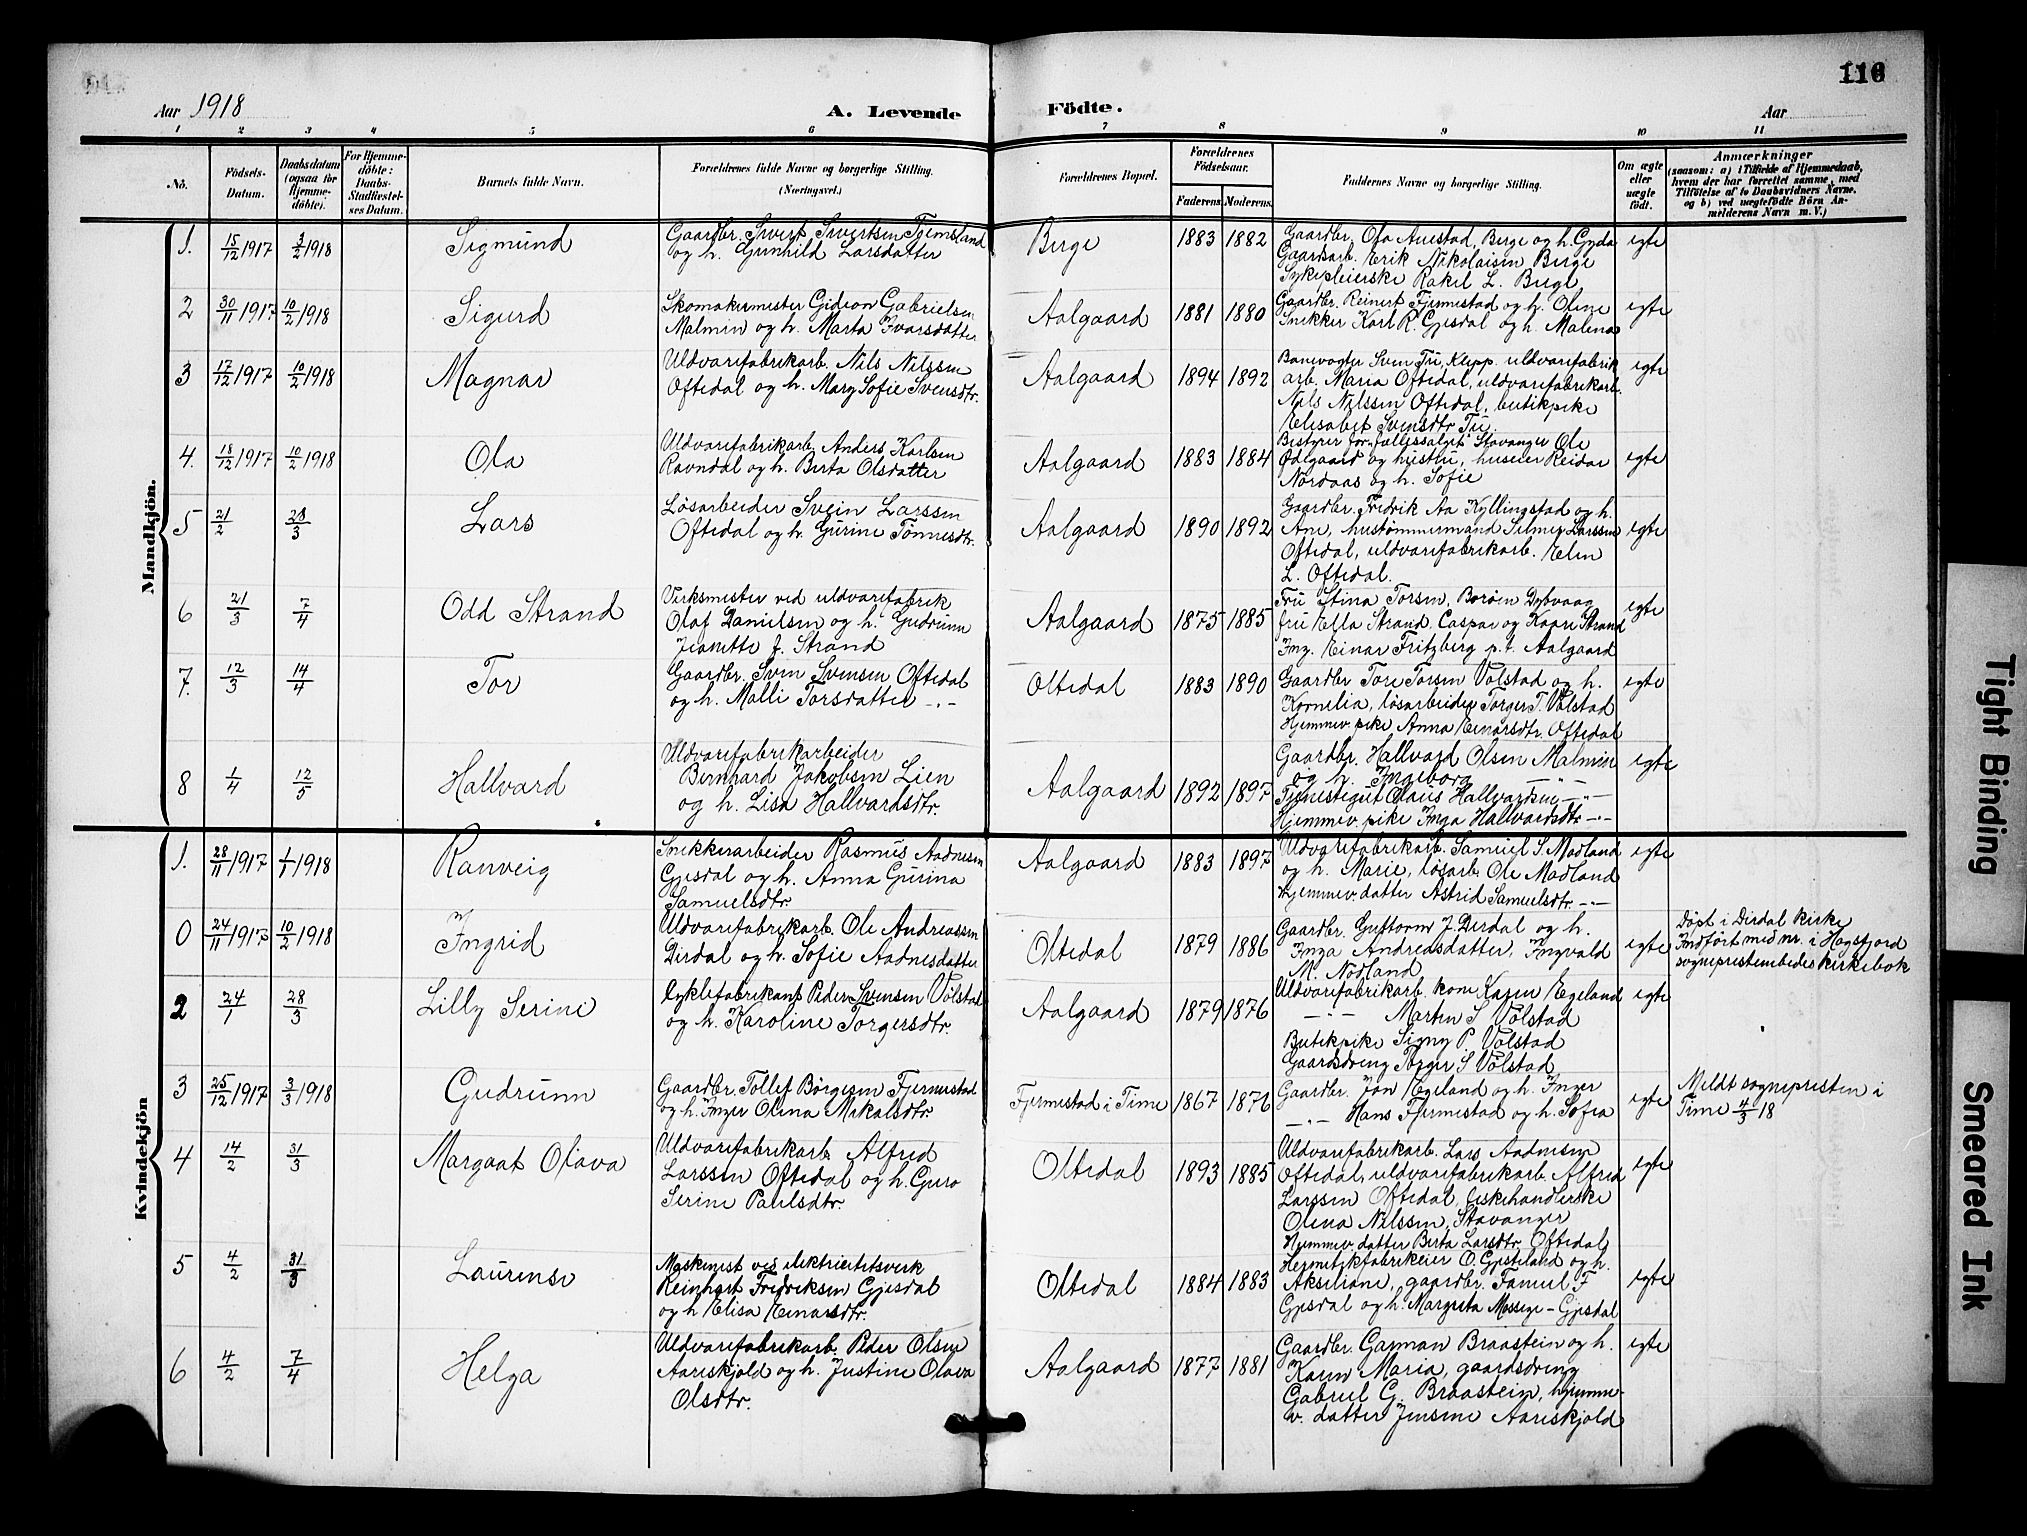 116
Aar 1918
A. Levende
Födte.
Aar
1 2 3 4 5 6 7 8 9 10 11
No.
Födsels-Datum.
Daabsdatum (ogsaa for Hjemme-döbte).
For Hjemme-döbte: Daabs-Stadfæstel-ses Datum.
Barnets fulde Navn.
Forældrenes fulde Navne og borgerlige Stilling.
(Næringsvei.)
Forældrenes Bopæl.
Forældrenes Födselsaar.
Faderens.
Moderens.
Faddernes Navne og borgerlige Stilling.
Om ægte eller uægte født.
Anmærkninger
(saasom: a) i Tilfælde af Hjemmedaab, hvem der har forrettet samme, med Tilføielse af to Daabsvidners Navne, og b) ved uægtefödte Börn An-melderens Navn m. V.)
Mandkjön.
1. 15/12 1917 3/2 1918 Sigmund
Gaardbr. Sivert Sivertsen Tjemsland
og h. Gunhild Larsdatter
Berge 1883 1882
Gaardbr. Ola Auestad, Berge og h. Gyda
Gaardarb. Erik Nikolaisen Berge
Sykepleierske Rakel L. Berge
egte
2 30/11 1917 10/2 1918 Sigurd
Skomakermester Gideon Gabrielsen
Malmin og h. Marta Ivarsdatter
Aalgaard 1881 1880
Gaardbr. Reinert Fjermestad og h. Oline
Snekker Karl R. Gjesdal og h. Malena
egte
3 17/12 1917 10/2 1918 Magnar
Uldvarefabrikarb. Nils Nilssen
Oftedal og h. Mary Sofie Svensdtr.
Aalgaard 1894 1892
Banevogter Sven Tu, Klepp. uldvarefabrik
arb. Maria Oftedal, uldvarefabrikarb.
Nils Nilssen Oftedal, butikpike
Elisabet Svensdtr Tu.
egte
4. 18/12 1917 10/2 1918 Ola
Uldvarefabrikarb. Anders Karlsen
Ravndal og h. Berta Olsdatter
Aalgaard 1883 1884
Bestyrer for "fællessalget" Stavanger Ole
Ødegaard og hustru, huseier Reidar
Nordaas og h. Sofie
egte
5 21/2 28/3 Lars
Løsarbeider Svein Larssen
Oftedal og h. Gurine Tønnesdtr.
Aalgaard 1890 1892
Gaardbr. Fredrik Aa Kyllingstad og h.
Ane, hustømmermand Selmer Larssen
Oftedal, uldvarefabrikarb. Elen
L. Oftedal.
egte
6 21/3 7/4 Odd Strand
Verksmester ved uldvarefabrik
Olaf Danielsen og h. Gudrunn
Jeanette J. Strand
Aalgaard 1875 1885
Fru Stina Torsen, Borøen Dybvaag
fru Ella Strand. Caspar og Kaare Strand
Ing. Einar Fritzberg p. t. Aalgaard
egte
7. 12/3 14/4 Tor
Gaardbr. Sven Svensen Oftedal
og h. Malli Torsdatter -.-
Oltedal 1883 1890
Gaardbr Tore Torsen Vølstad og h.
Kornelia, løsarbeider Torger T. Vølstad
Hjemmev. pike Anna Einarsdtr. Oftedal
egte
8 1/4 12/5 Hallvard
Uldvarefabrikarbeider
Bernhard Jakobsen Lien
og h. Lisa Hallvardsdtr.
Aalgaard 1892 1897
Gaardbr. Hallvard Olsen Malmin
og h. Ingeborg -"-
Tjenestegut Olaus Hallvardsen -"-
Hjemmev. pike Inga Hallvardsdtr -.-
egte
Kvindekjön
1. 28/11 1917 1/1 1918 Ranveig
Snekkerarbeider Rasmus Aadnesen
Gjesdal og h. Anna Gurina
Samuelsdtr.
Aalgaard 1883 1897
Uldvarefabrikarb. Samuel S. Madland
og h. Marie, løsarb. Ole Madland
hjemmev. datter Astrid Samuelsdtr. -.-
egte
0 24/11 1917 10/2 1918 Ingrid
Uldvarefabrikarb. Ole Andreassen
Dirdal og h. Sofie Aadnesdatter
Oltedal 1879 1886
Gaardbr. Guttorm J. Dirdal og h.
Inga Andreasdatter, Ingvald
M. Nødland
egte
Døpt i Dirdal kirke
Indført med nr. i Høgsfjord
sogneprestembedes kirkebok
2 24/1 28/3 Lilly Serine
Cyklefabrikant Peder Svensen Vølstad
og h. Karoline Torgersdtr.
Aalgaard 1879 1876
Uldvarefabrikarb. kone Karen Egeland
-.- Marten S Vølstad
Butikpike Signy P. Vølstad
Gaardsdreng Torger S Vølstad
egte
3 25/12 1917 3/3 1918 Gudrunn
Gaardbr. Tollef Børgesen Fjermestad
og h. Inger Olena Mikalsdtr.
Fjermestad i Time 1867 1876
Gaardbr. Jon Egeland og h. Inger
-.- Hans Fjermestad og h. Sofia
egte
Meldt sognepresten i
Time 4/3 18
4 14/2 31/3 Margaat Olava
Uldvarefabrikarb. Alfred
Larssen Oftedal og h. Guro
Serine Paulsdtr.
Oltedal 1893 1885
Uldvarefabrikarb. Lars Aadnesen
Oftedal, uldvarefabrikarb. Alfred
Larssen Oftedal, fiskehandlerske
Olena Nilssen, Stavanger
Hjemmev. datter Berta Larsdtr. Oftedal
egte
5 4/2 31/3 Laurense
Maskinist ved elektricitetsverk
Reinhart Fredriksen Gjesdal
og h Elisa Einarsdtr.
Oltedal 1884 1883
Hermetikfabrikeier O. Gjesteland og h.
Akseliane, gaardbr. Samuel F
Gjesdal og h. Margreta Messige - Gjesdal
egte
6 4/2 7/4 Helga
Uldvarefabrikarb. Peder Olsen
Aareskjold og h. Justine Olava
Olsdtr.
Aalgaard 1877 1881
Gaardbr. Garman Braastein og h.
Karen Maria, gaardsdreng
Gabriel G. Braastein, hjemme-
v. datter Jensine Aareskjold
egte
Tight Binding
Smeared Ink